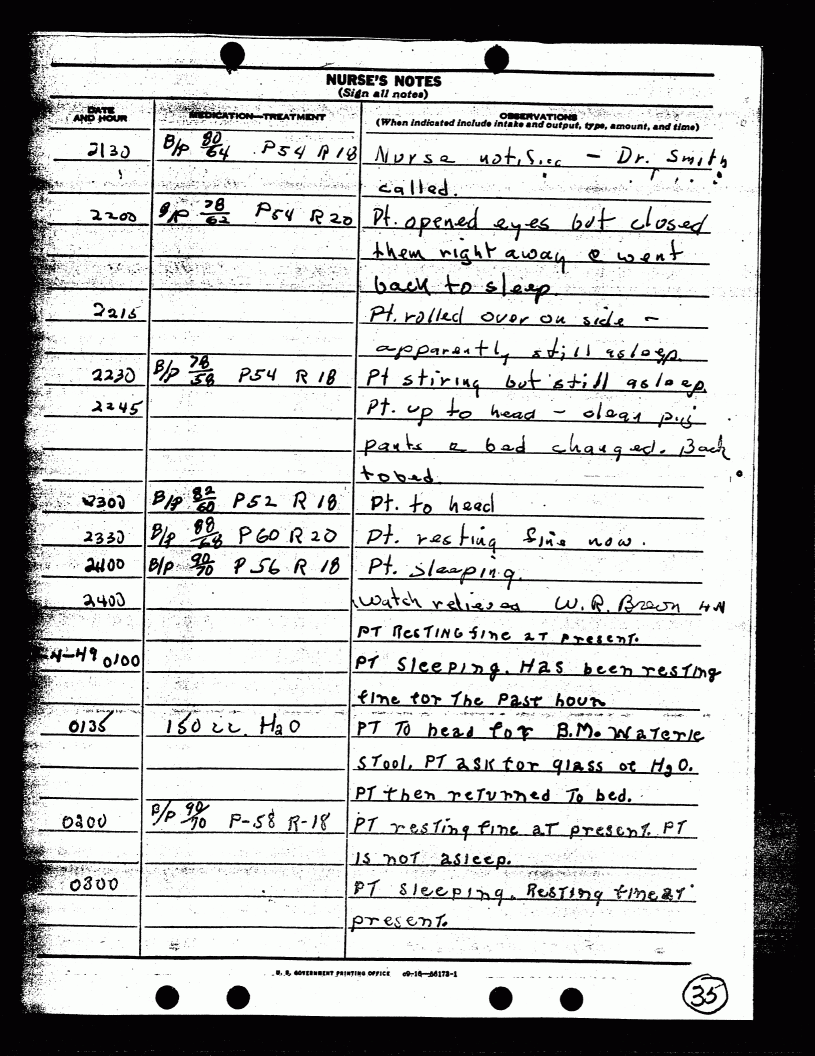 NURSE'S NOTES
(Sign all notes)
DATE AND HOUR
MEDICATION—TREATMENT
OBSERVATIONS
(When indicated include intake and output, type, amount, and time)
2130 B/P 80/64 P54 R18 Nurse notified — Dr. Smith
called.
2200 B/P 78/62 P54 R20 Pt. opened eyes but closed
them right away & went
back to sleep.
2215 Pt. rolled over on side —
apparently still asleep.
2230 B/P 78/58 P54 R 18 Pt stiring but still asleep.
2245 Pt. up to head — clean
pants & bed changed. Back
to bed.
2300 B/P 82/60 P52 R 18 Pt. to head
2330 B/P 88/68 P60 R20 Pt. resting fine now.
2400 B/P 90/70 P56 R 18 Pt. Sleeping.
2400 Watch relieved W.R. Brown HN
PT RESTING fine at present.
-49 0100 PT Sleeping. Has been resting
fine for The Past hour
0135 150 cc. H2O PT To head for B.M. Waterie
Stool. PT ask for glass of H2O.
PT then returned To bed.
0200 B/P 90/70 P-58 R-18 PT resting fine at present. PT
is not asleep.
0300 PT Sleeping. Resting fine at
present.
U. S. GOVERNMENT PRINTING OFFICE
35